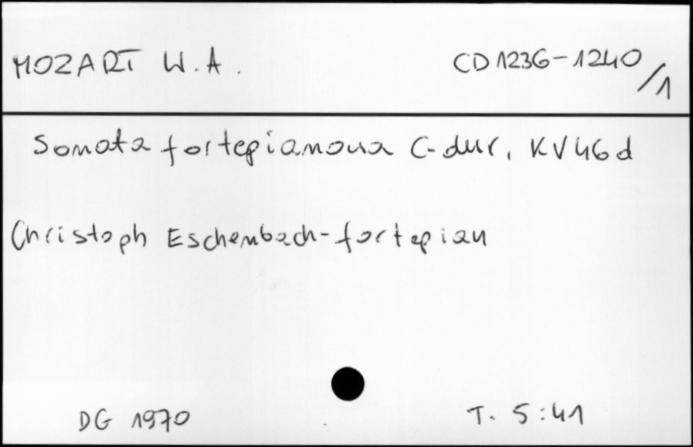 MOZART W.A. CD 1236-1240/1
Sonata fortepianowa C-dur, KV 46d
Christoph Eschenbach-fortepian
DG 1970 T. 5:41